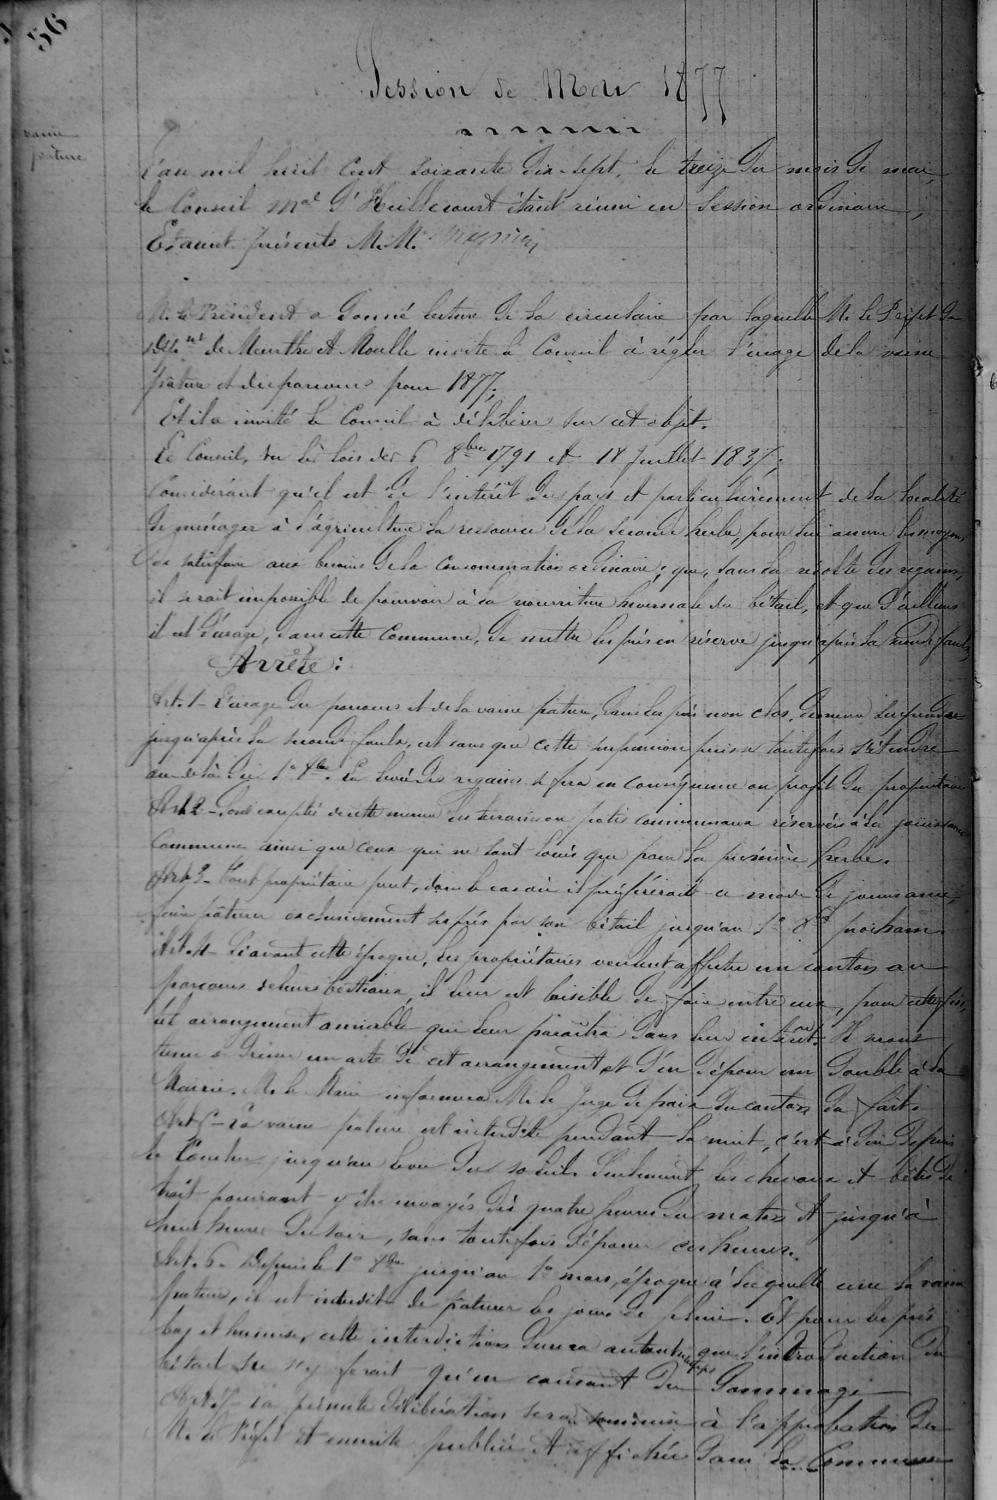 56
Session de Mai 1877
vaine
pature
L'an mil huit cent soixante dix-sept, le treize du mois de mai,
le Conseil mal d'Heillecourt étant réuni en session ordinaire,
Etaient présents M.M.
M. le Président a donné lecture de la circulaire par laquelle M. le Préfet du
dépnt de Meurthe et Moselle invite le Conseil à régler l'usage de la vaine
pature et du parcours pour 1877;
Et il a invité le Conseil à délibérer sur cet objet.
Le Conseil, vu les lois des 6 8bre 1791 et 18 Juillet 1837;
Considérant qu'il est de l'intérêt du pays et particulièrement de la localité
de ménager à l'agriculture la ressource de la seconde herbe, pour lui assurer les moyens
de satisfaire aux besoins de la consommation ordinaire; que, sans la récolte des regains,
il serait impossible de pourvoir à la nourriture hivernale du bétail, et que d'ailleurs
il est d'usage, dans cette Commune, de mettre les prés en réserve jusqu'après la seconde faulx,
Arrête:
Art. 1 - L'usage du parcours et de la vaine pature, dans les prés non clos, demeure suspendu
jusqu'après la seconde faulx, et sans que cette suspension puisse toutefois s'étendre
au delà du 1er 8bre. La levée des regains se fera en conséquence au profit du propriétaire
Art. 2 - Sont exceptés de cette mesure les terrains ou patis communaux réservés à la jouissance
Commune ainsi que ceux qui ne sont loués que pour la première herbe.
Art. 3 - Tout propriétaire peut, dans le cas où il préférerait ce mode de jouissance,
faire pâturer exclusivement ses prés par son bétail jusqu'au 1er 8bre prochain.
Art. 4 - Si avant cette époque, les propriétaires veulent affecter un canton au
parcours de leurs bestiaux, il leur est loisible de faire entre eux, pour cette fin,
tel arrangement amiable qui leur paraîtra dans leur intérêt. Ils seront
tenus de dresser un acte de cet arrangement et d'en déposer un double à la
Mairie. M. le Maire informera M. le Juge de paix du canton du fait.
Art. 5 - La vaine pature est interdite pendant la nuit, c'est à dire depuis
le coucher jusqu'au lever du soleil. Seulement les chevaux et bêtes de
trait pourront y être envoyés dès quatre heures du matin et jusqu'à
huit heures du soir, sans toutefois dépasser ces heures.
Art. 6 - Depuis le 1er 8bre jusqu'au 1er mars, époque à laquelle cesse la vaine
pature, il est interdit de paturer les jours de pluie. Et pour les prés
bas et humides, cette interdiction durera autant temps que l'introduction du
bétail ne s'y ferait qu'en causant du dommage
Art. 7 - La présente délibération sera soumise à l'approbation de
M. le Préfet et ensuite publiée et affichée dans la Commune